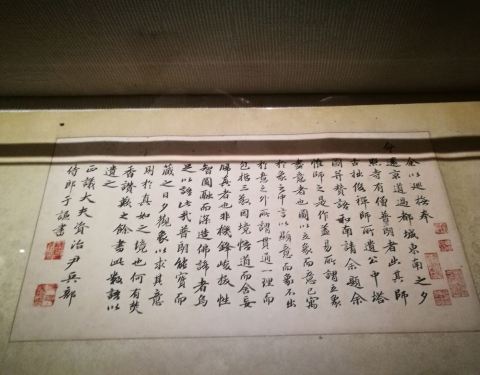 余以巡撫奉
命還京道過都城東南之夕
照寺有僧普明者出其師
古拙俊禅師所遺公中塔
圖并贊語和南請余題余
惟師之是作蓋易所謂立象
盡意者也圖以立象而意已寓
於象之中言以顯意而象不出
於意之外所謂貫通一理而
包括三教因境悟道而舍妄
歸真者也非機鋒峻拔性
智圓融而深造佛諦者烏
足以語此我普明能寶而
藏之日夕觀象以求其意
則於真如之境也何有哉
香讚歎之餘書此數語以
遺之
正議大夫資治尹兵部
侍郎于謙書